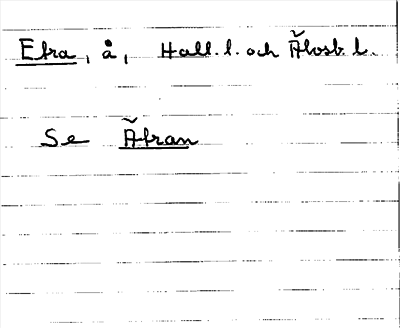 Etra, å, Hall. l. och Älvsb. l.
Se Ätran